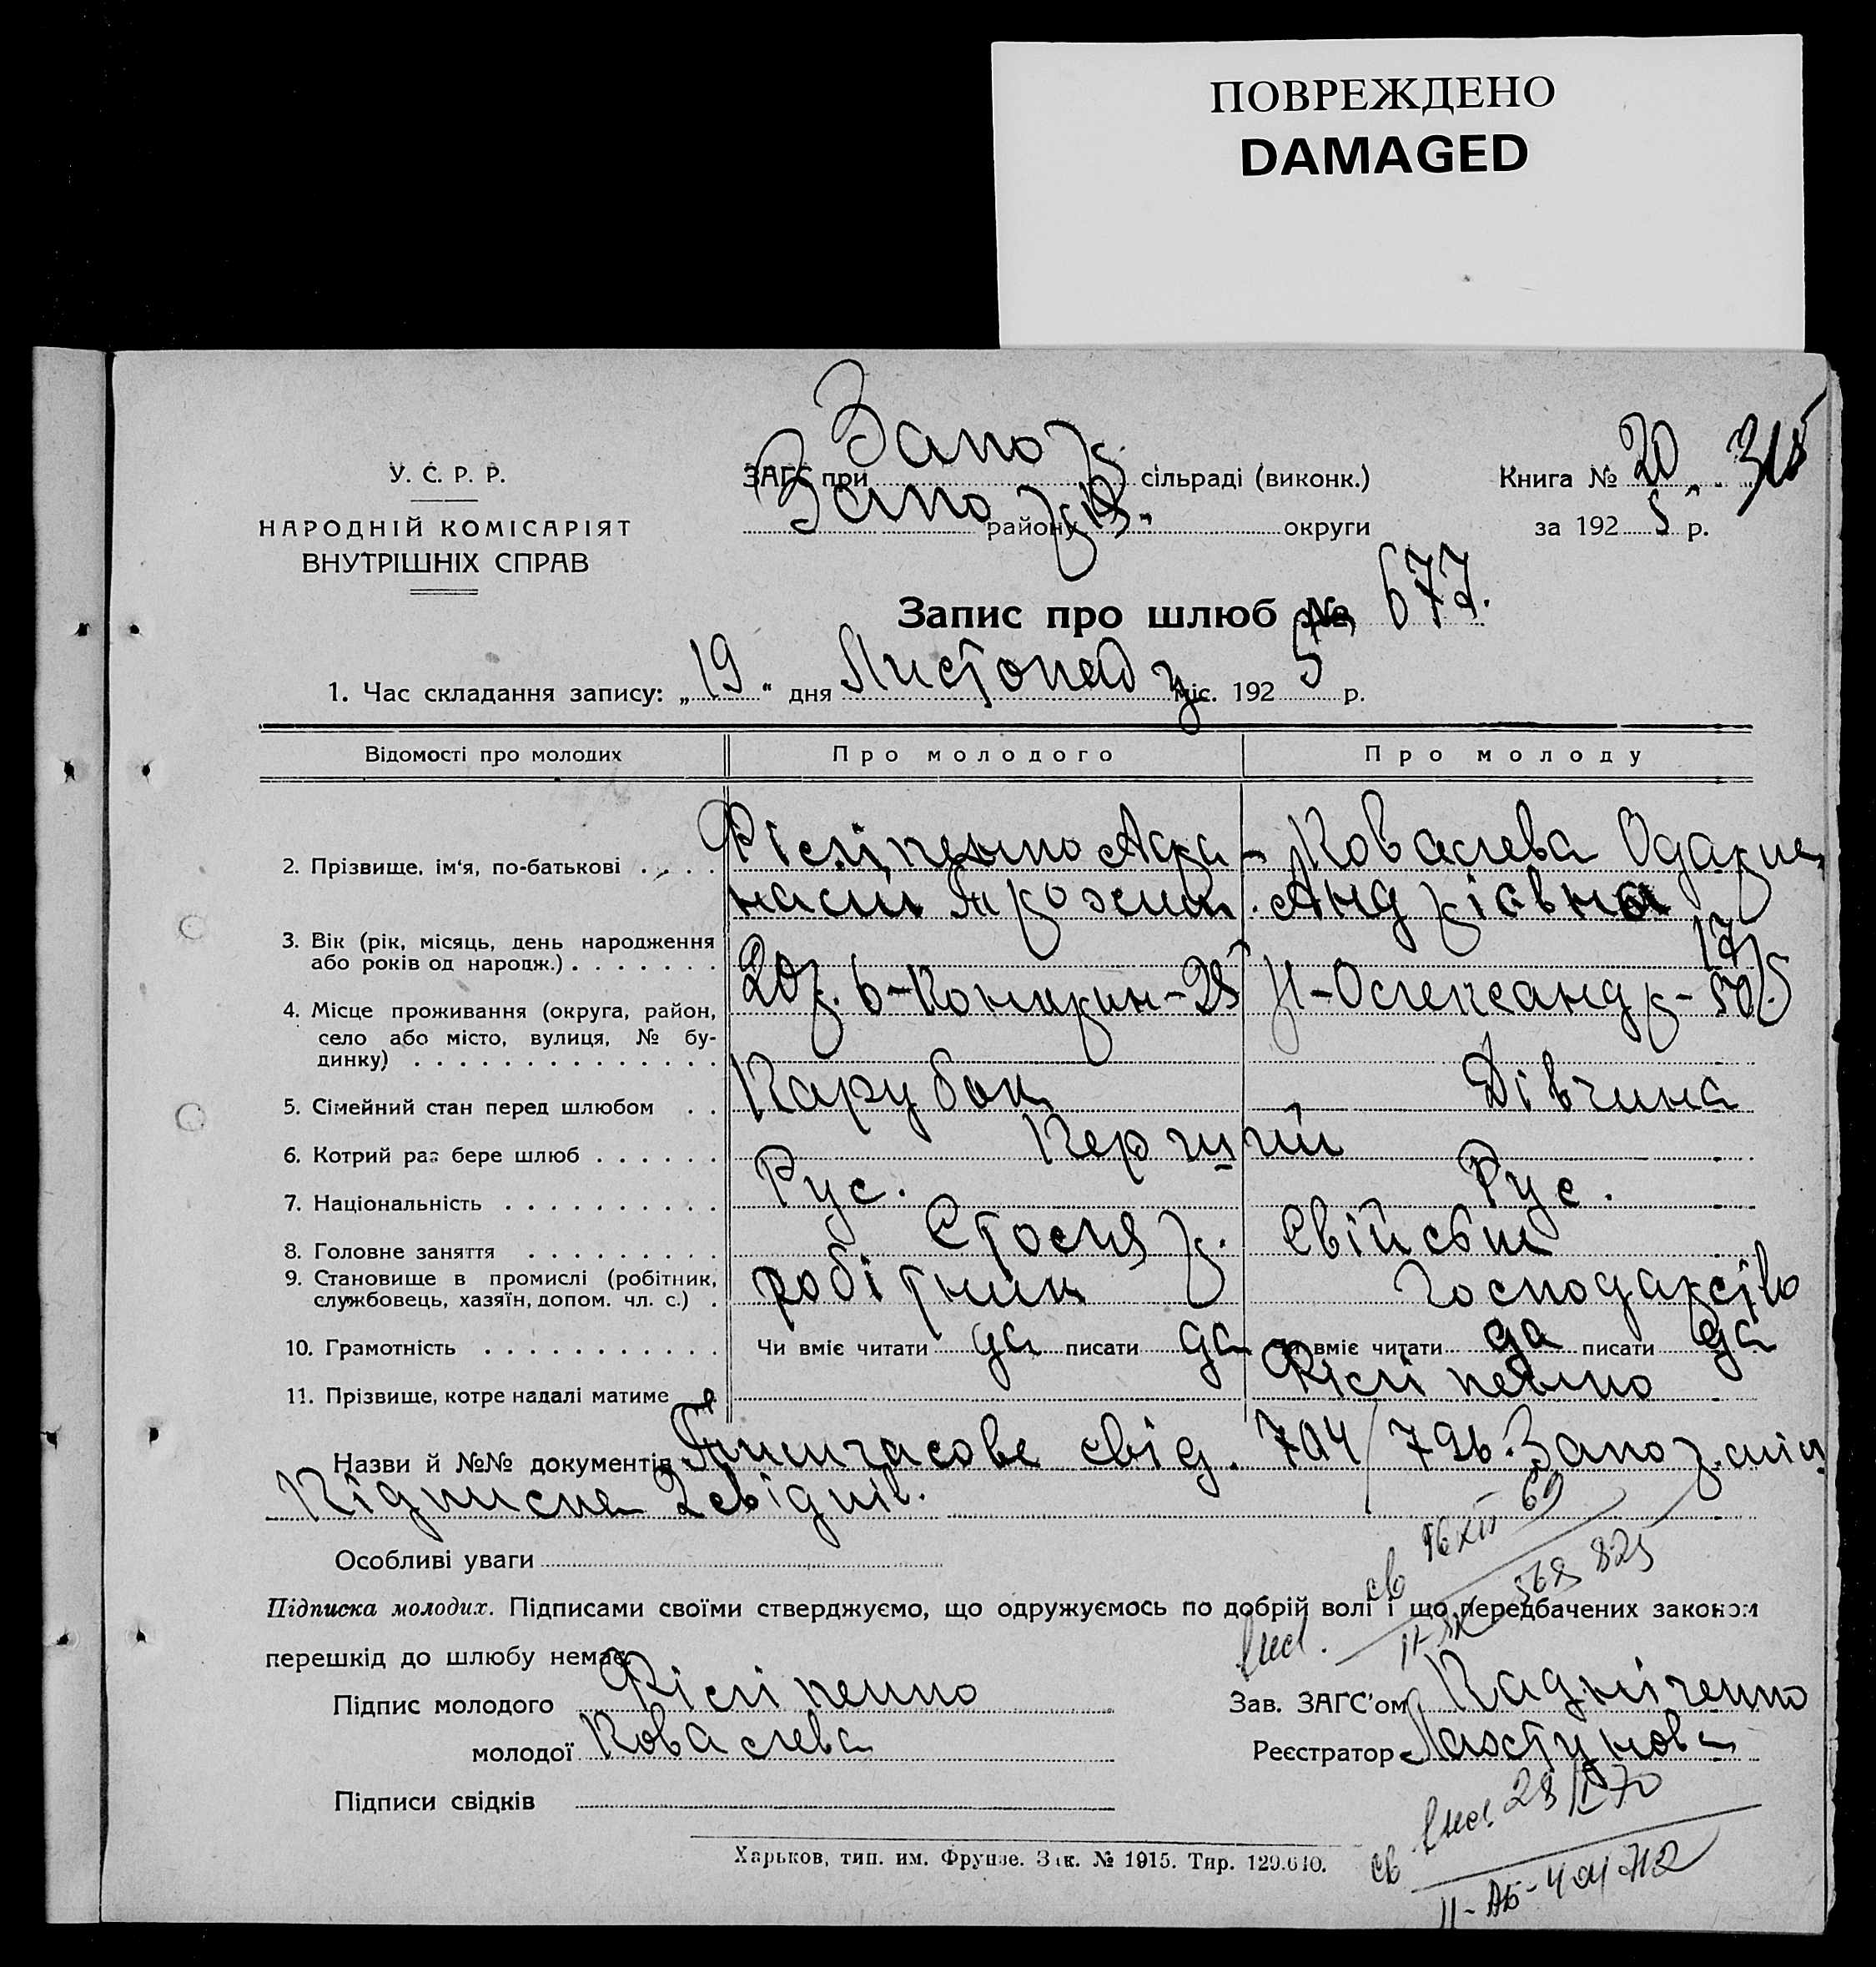 ПОВРЕЖДЕНО
DAMAGED
У. С. Р. Р.
НАРОДНІЙ КОМІСАРІЯТ
ВНУТРІШНІХ СПРАВ
ЗАГС при Запор. сільраді (виконк.)
Запоріз. району округи
Книга № 20
за 1925 р.
Запис про шлюб № 677.
1. Час складання запису: „19“ дня Листопад міс. 1925 р.
Відомості про молодих Про молодого Про молоду
2. Прізвище, ім‘я, по-батькові Філіпенко Афа- Ковалева Одарка
насій Трохим. Андріївна
3. Вік (рік, місяць, день народження
або років од народж.) 20 р. 17 р.
4. Місце проживання (округа, район,
село або місто, вулиця, № бу-
динку)
5. Сімейний стан перед шлюбом Парубок Дівчина
6. Котрий раз бере шлюб Перший
7. Національність Рус. Рус.
8. Головне заняття Столяр. Свійське
9. Становище в промислі (робітник,
службовець, хазяїн, допом. чл. с.) робітник Господарство
10. Грамотність Чи вміє читати да писати да Чи вміє читати да писати да
11. Прізвище, котре надалі матиме Філіпенко
Назви й №№ документів Тимчасове свід. 704/796. Запоз.
Підписка 2 свідків.
Особливі уваги
Підписка молодих. Підписами своїми стверджуємо, що одружуємось по добрій волі і що передбачених законом
перешкід до шлюбу немає.
Підпис молодого Філіпенко
Зав. ЗАГС’ом
молодої Ковалева
Реєстратор
Підписи свідків
Харьков, тип. им. Фрунзе. Зак. № 1915. Тир. 129.610.